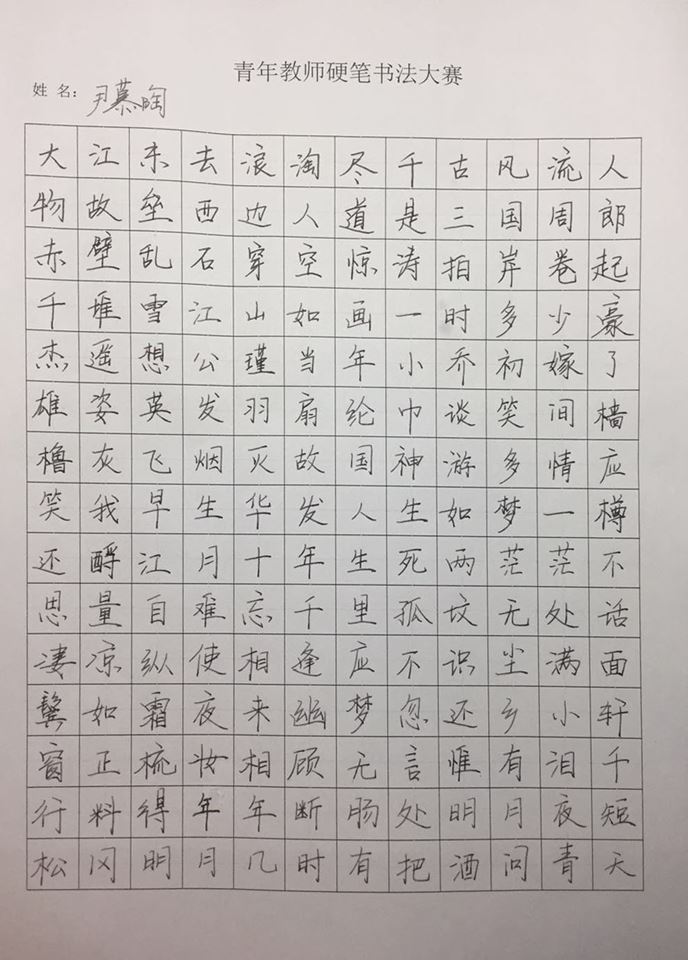 青年教师硬笔书法大赛
姓 名：尹慕陶
大江东去浪淘尽千古风流人
物故垒西边人道是三国周郎
赤壁乱石穿空惊涛拍岸卷起
千堆雪江山如画一时多少豪
杰遥想公瑾当年小乔初嫁了
雄姿英发羽扇纶巾谈笑间樯
橹灰飞烟灭故国神游多情应
笑我早生华发人生如梦一樽
还酹江月十年生死两茫茫不
思量自难忘千里孤坟无处话
凄凉纵使相逢应不识尘满面
鬓如霜夜来幽梦忽还乡小轩
窗正梳妆相顾无言惟有泪千
行料得年年断肠处明月夜短
松冈明月几时有把酒问青天